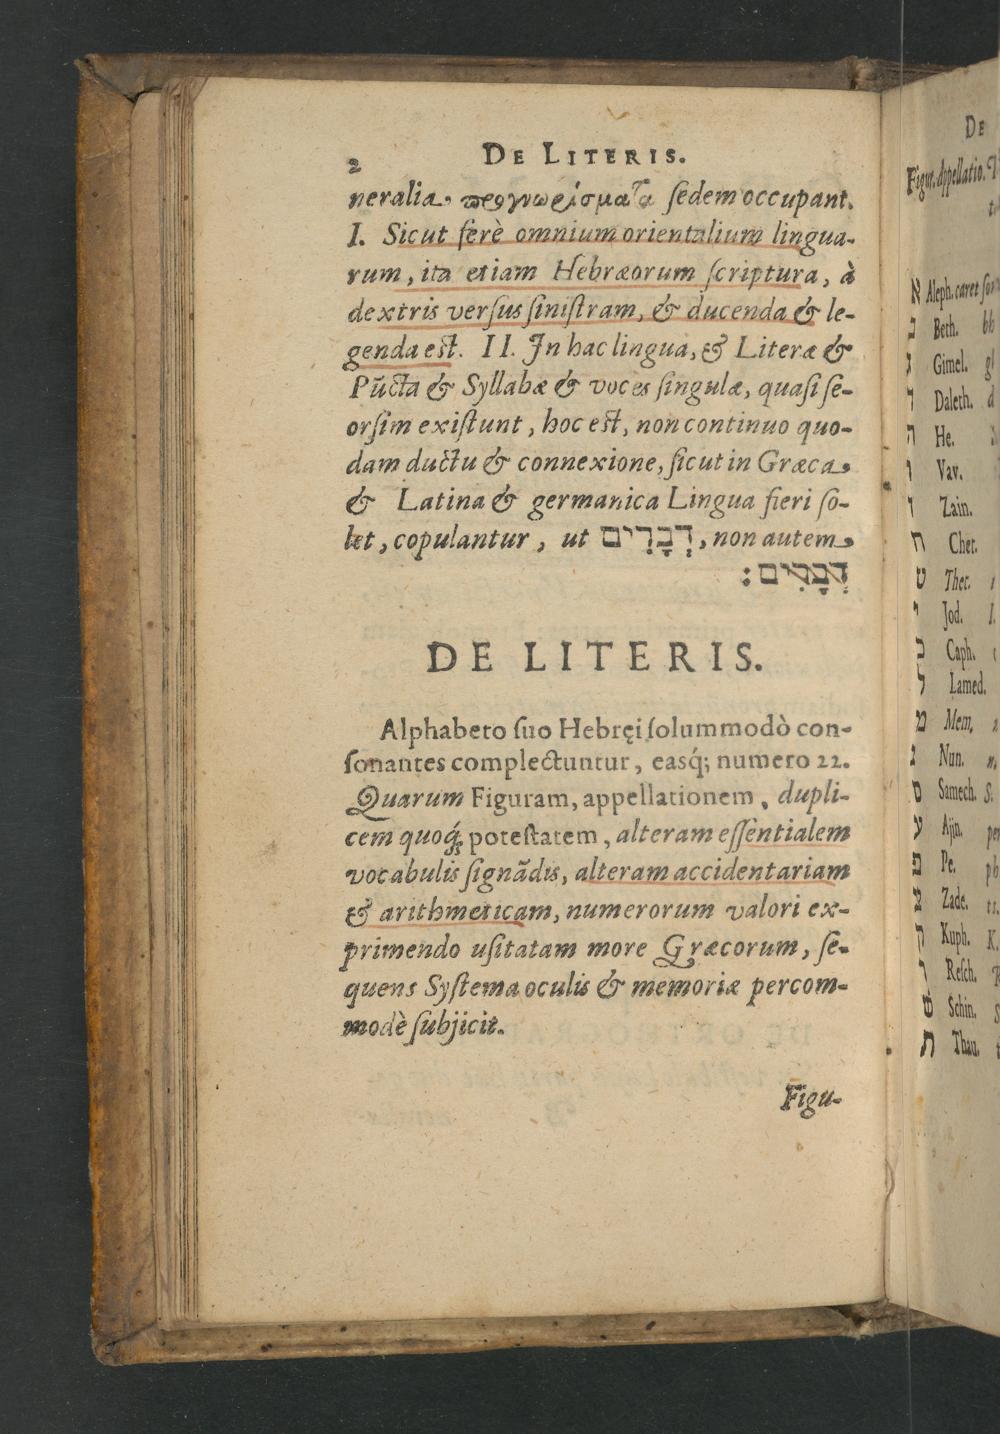 2 DE LITERIS.
neralia προγνωρίσματα ſedem occupant.
I. Sicut ferè omnium orientalium lingua-
rum, ita etiam Hebræorum ſcriptura, à
dextris verſus ſiniſtram, & ducenda & le-
genda eſt. II. In hac lingua, & Literæ &
Pūcta & Syllabæ & voces ſingulæ, quaſi ſe-
orſim exiſtunt, hoc eſt, non continuo quo-
dam ductu & connexione, ſicut in Græca
& Latina & germanica Lingua fieri ſo-
let, copulantur, ut דְּבָרִים, non autem
דְּבָרִים:
DE LITERIS.
Alphabeto ſuo Hebręi ſolummodò con-
ſonantes complectuntur, easq́; numero 22.
Quarum Figuram, appellationem, dupli-
cem quoq́; poteſtatem, alteram eſſentialem
vocabulis ſignādis, alteram accidentariam
& arithmeticam, numerorum valori ex-
primendo uſitatam more Græcorum, ſe-
quens Syſtema oculis & memoriæ percom-
modè ſubjicit.
Figu-
DE
Figur. Appellatio.
א Aleph. caret
ב Beth. bb
ג Gimel.
ד Daleth. d
ה He.
ו Vav.
ז Zain.
ח Chet.
ט Thet.
י Jod.
כ Caph.
ל Lamed.
מ Mem.
נ Nun. n.
ס Samech. S.
ע Ajin.
פ Pe. ph
צ Zade. ts.
ק Kuph. K.
ר Reſch.
שׁ Schin. S
ת Thau. t